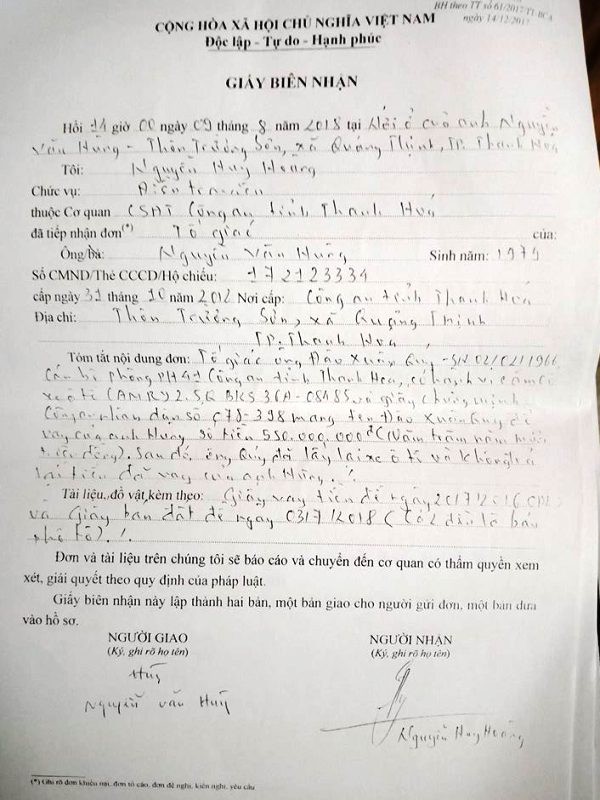 BH theo TT số 61/2017/TT-BCA
ngày 14/12/2017
CỘNG HÒA XÃ HỘI CHỦ NGHĨA VIỆT NAM
Độc lập - Tự do - Hạnh phúc
GIẤY BIÊN NHẬN
Hồi 14 giờ 00 ngày 09 tháng 8 năm 2018 tại Nơi ở của anh Nguyễn
Văn Hùng - Thôn Trường Sơn, xã Quảng Thịnh, TP. Thanh Hoá
Tôi: Nguyễn Huy Hoàng
Chức vụ: Điều tra viên
thuộc Cơ quan CSĐT Công an tỉnh Thanh Hoá
đã tiếp nhận đơn(*) Tố giác của:
Ông/bà: Nguyễn Văn Hùng Sinh năm: 1979
Số CMND/Thẻ CCCD/Hộ chiếu: 172123334
cấp ngày 31 tháng 10 năm 2012 Nơi cấp: Công an tỉnh Thanh Hoá
Địa chỉ: Thôn Trường Sơn, xã Quảng Thịnh
TP. Thanh Hoa
Tóm tắt nội dung đơn: Tố giác ông Đào Xuân Quy - SN 02/02/1966
Cán bộ phòng PH41 Công an tỉnh Thanh Hoá, có hành vi cầm cố
xe ô tô CAMRY 2.5Q BKS 36A - và giấy chứng minh
Công an nhân dân số 398 mang tên Đào Xuân Quy để
vay của anh Hùng số tiền 550.000.000đ (Năm trăm năm mươi
triệu đồng). Sau đó, ông Quý đã lấy lại xe ô tô và không trả
lại tiền đã vay của anh Hùng./.
Tài liệu, đồ vật kèm theo: Giấy vay tiền đề ngày 20/7/2016
và Giấy bán đất đề ngày 03/7/2018 (Cả 2 đều là bản
phô tô)./.
Đơn và tài liệu trên chúng tôi sẽ báo cáo và chuyển đến cơ quan có thẩm quyền xem
xét, giải quyết theo quy định của pháp luật.
Giấy biên nhận này lập thành hai bản, một bản giao cho người gửi đơn, một bản đưa
vào hồ sơ.
NGƯỜI GIAO NGƯỜI NHẬN
(Ký, ghi rõ họ tên) (Ký, ghi rõ họ tên)
Hùg
Nguyễn Văn Hùg
Nguyễn Huy Hoàng
(*) Ghi rõ đơn khiếu nại, đơn tố cáo, đơn đề nghị, kiến nghị, yêu cầu